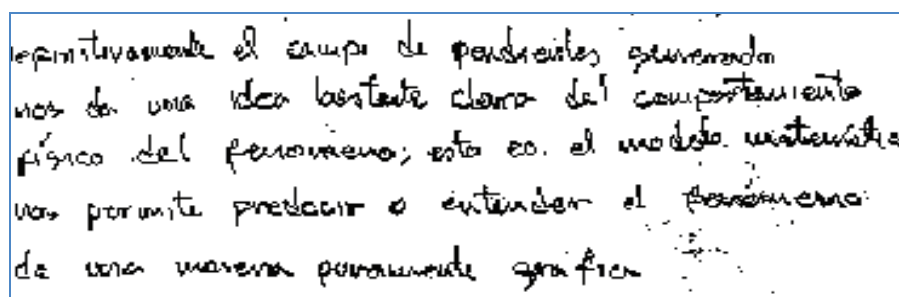 definitivamente el campo de pendientes generado
nos da una idea bastante clara del comportamiento
físico del fenomeno; esto es. el modelo matemátic
nos permite predecir o entender el fenómeno
de una manera puramente grafica